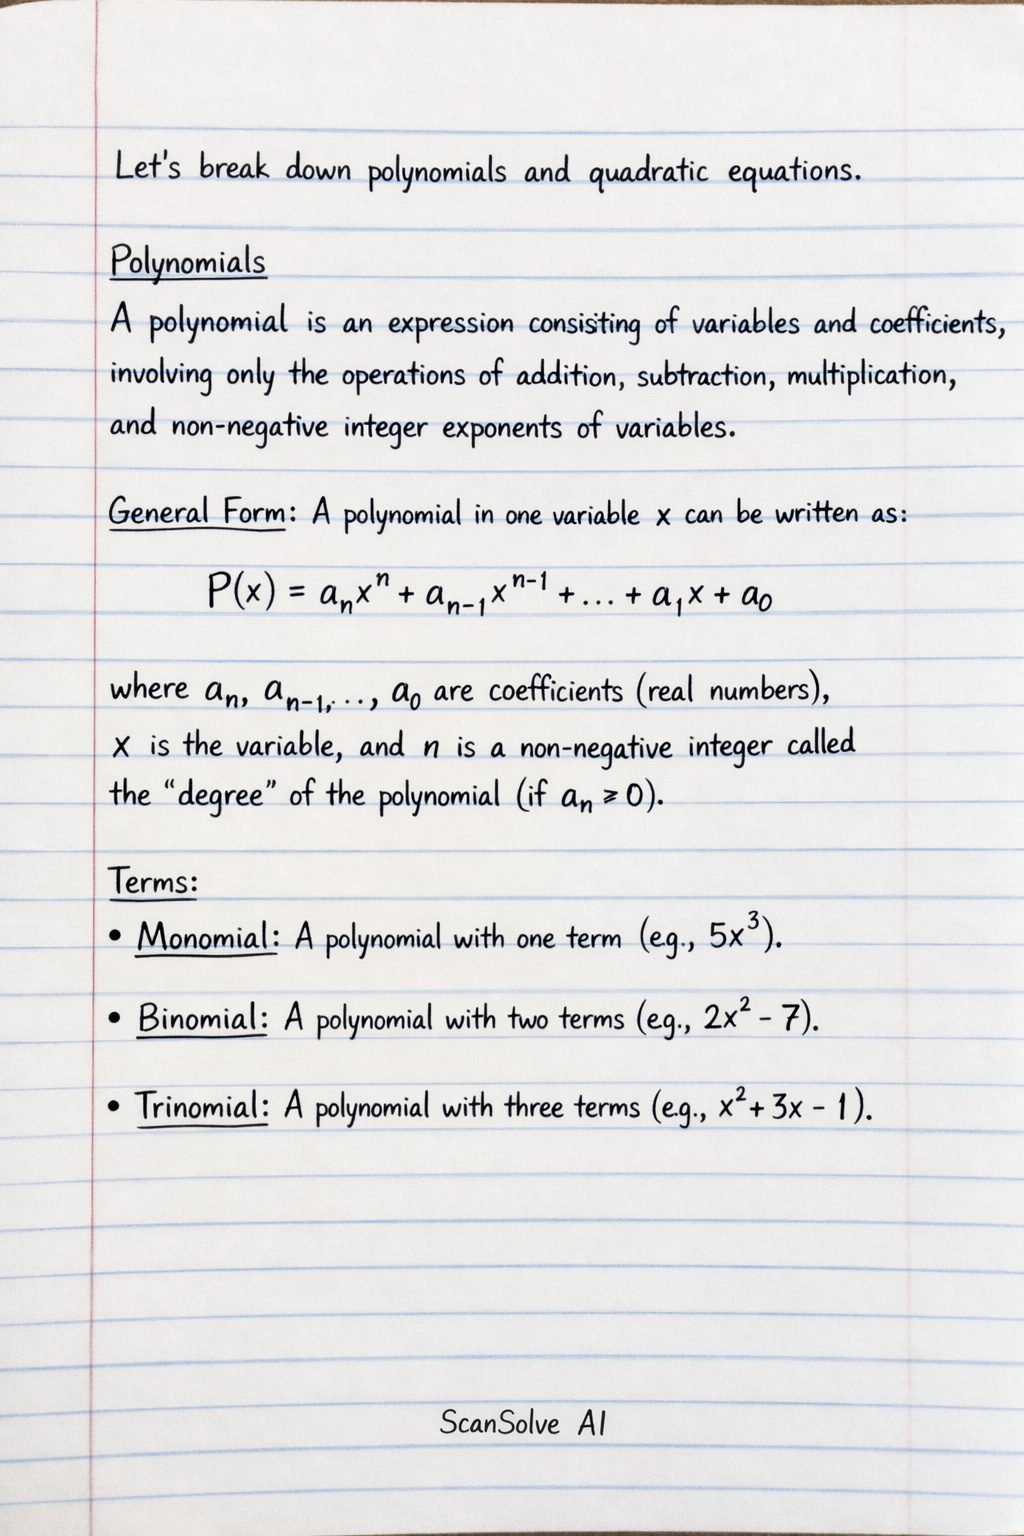 Let's break down polynomials and quadratic equations.
Polynomials
A polynomial is an expression consisting of variables and coefficients,
involving only the operations of addition, subtraction, multiplication,
and non-negative integer exponents of variables.
General Form: A polynomial in one variable x can be written as:
P(x) = aₙxⁿ + aₙ₋₁xⁿ⁻¹ + ... + a₁x + a₀
where aₙ, aₙ₋₁, ..., a₀ are coefficients (real numbers),
x is the variable, and n is a non-negative integer called
the “degree” of the polynomial (if aₙ ⩾ 0).
Terms:
• Monomial: A polynomial with one term (eg., 5x³).
• Binomial: A polynomial with two terms (eg., 2x² - 7).
• Trinomial: A polynomial with three terms (e.g., x² + 3x - 1).
ScanSolve AI